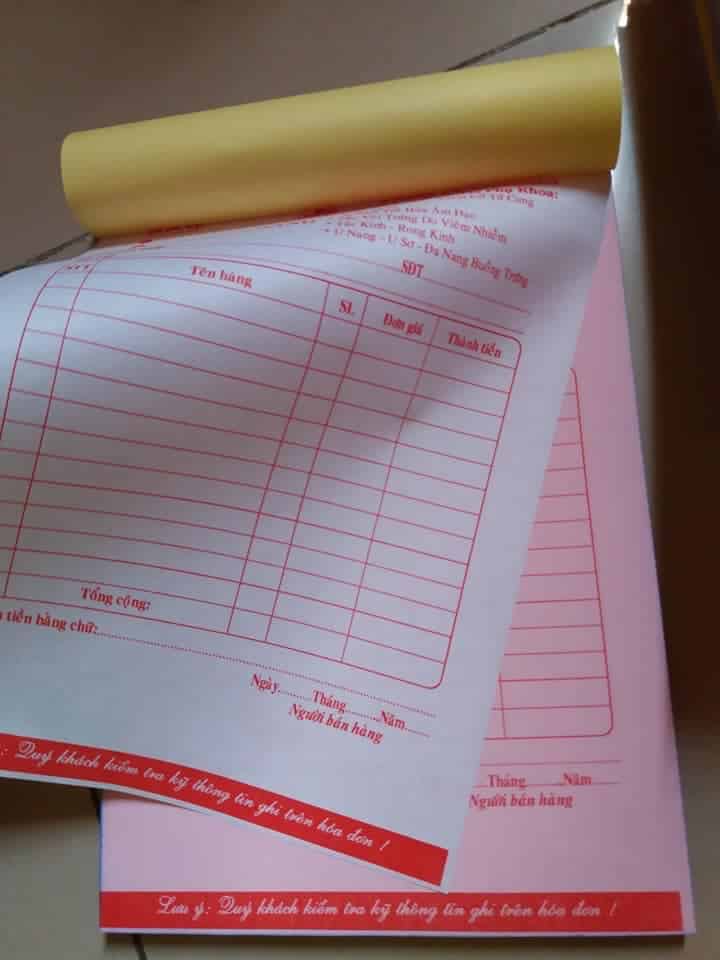 Phụ Khoa:
Tử Cung
Âm Đạo
Tường Do Viêm Nhiễm
Kinh - Rong Kinh
U Nang - U Sơ - Đa Nang Buồng Trứng
SĐT
Tên hàng
SL
Đơn giá
Thành tiền
Tổng cộng:
tiền bằng chữ:
Ngày.........Tháng.........Năm......
Người bán hàng
Quý khách kiểm tra kỹ thông tin ghi trên hóa đơn !
Tháng.........Năm......
Người bán hàng
Lưu ý: Quý khách kiểm tra kỹ thông tin ghi trên hóa đơn !